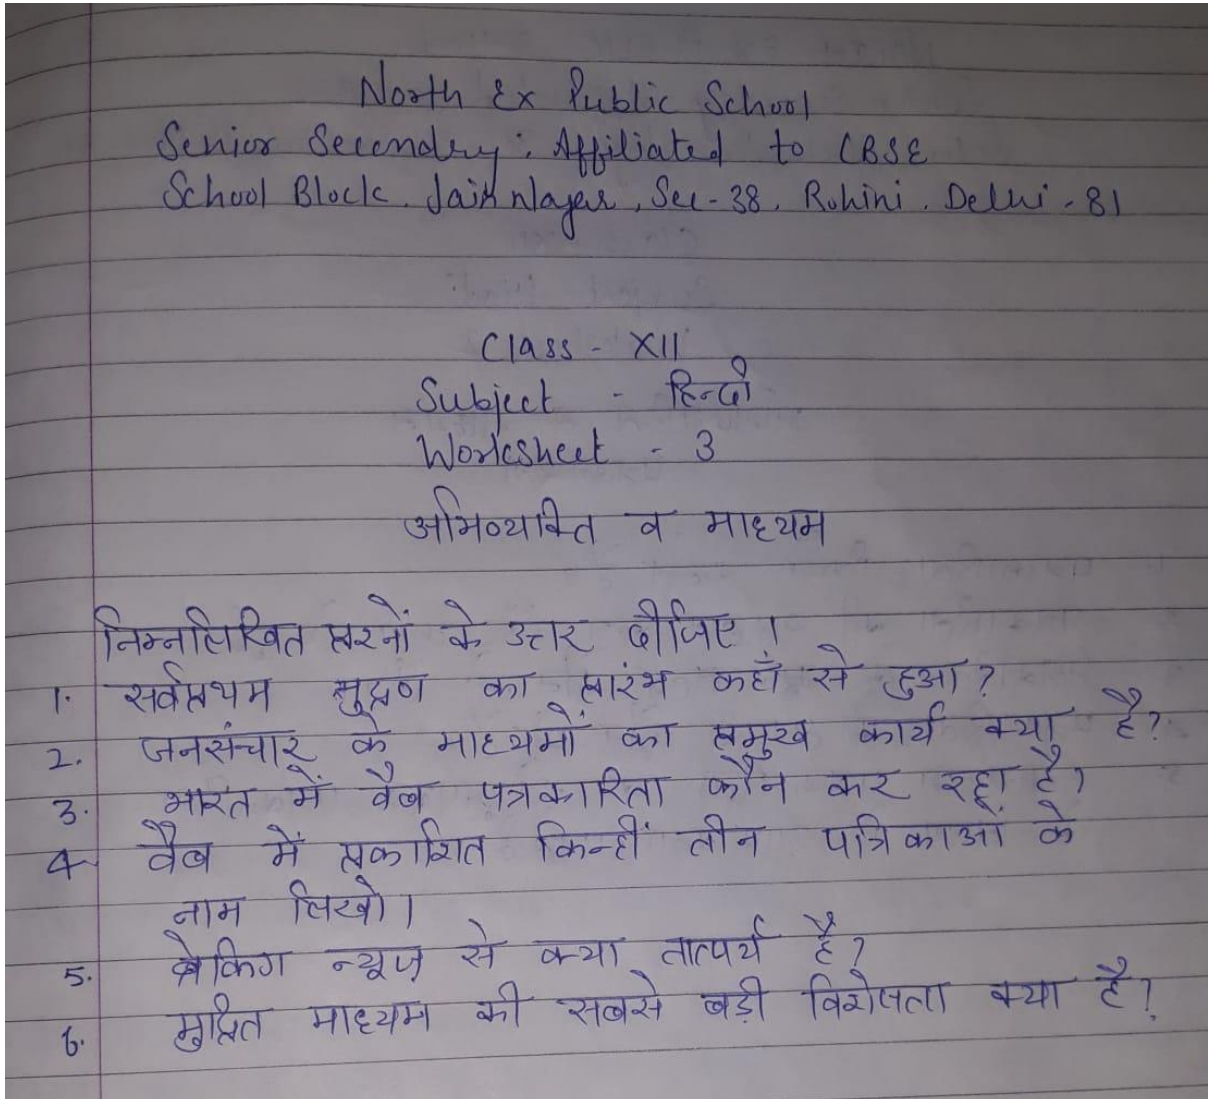 North Ex Public School
Senior Secondry : Affiliated to CBSE
School Block, Jain Nagar, Sec-38, Rohini, Delhi - 81
Class - XII
Subject - हिन्दी
Worksheet - 3
अभिव्यक्ति व माध्यम
निम्नलिखित प्रश्नों के उत्तर दीजिए।
1. सर्वप्रथम मुद्रण का प्रारंभ कहाँ से हुआ?
2. जनसंचार के माध्यमों का प्रमुख कार्य क्या है?
3. भारत में वैब पत्रकारिता कौन कर रहा है?
4 वैब में प्रकाशित किन्हीं तीन पत्रिकाओं के
नाम लिखो।
5. ब्रेकिग न्यूज़ से क्या तात्पर्य है?
6. मुद्रित माध्यम की सबसे बड़ी विशेषता क्या है?